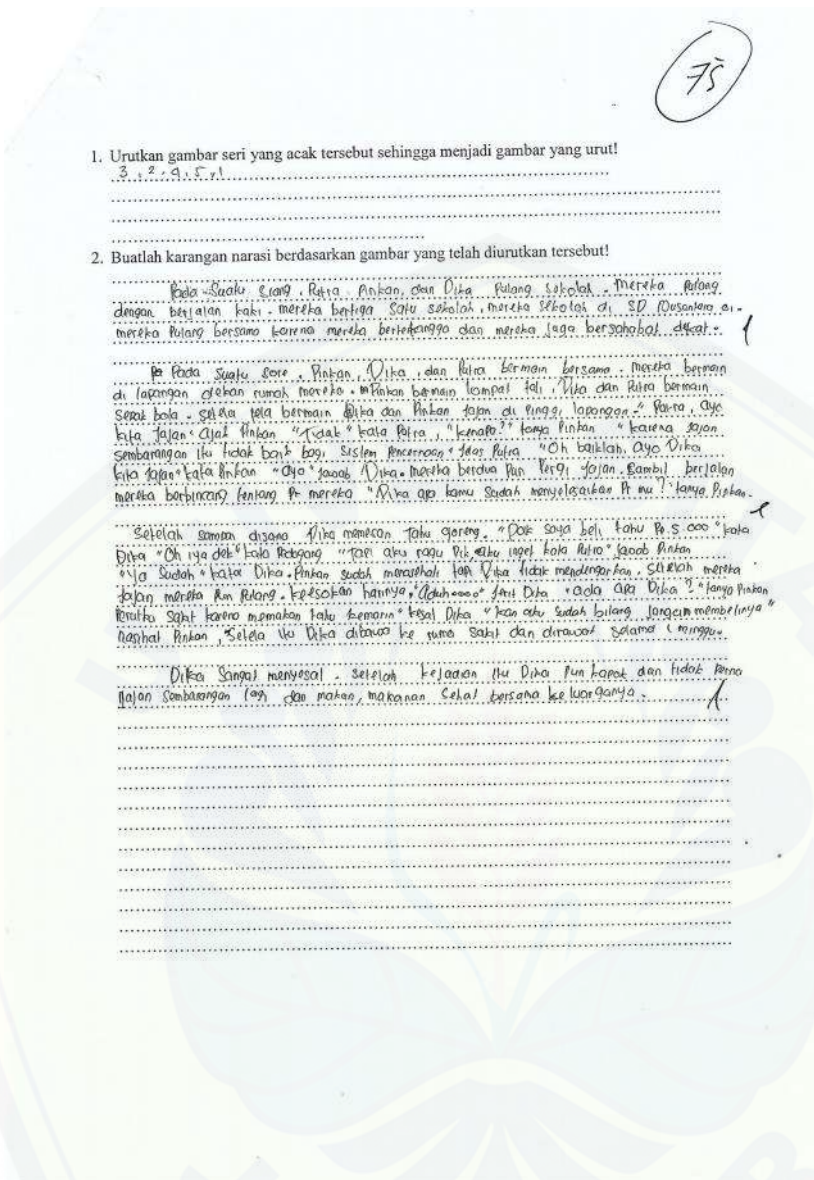 75
1. Urutkan gambar seri yang acak tersebut sehingga menjadi gambar yang urut!
3, 2, 4, 5, 1
2. Buatlah karangan narasi berdasarkan gambar yang telah diurutkan tersebut!
Pada Suatu Siang, Putra, Pinkan, dan Dika Pulang sekolah. Mereka Pulang
dengan berjalan kaki. mereka bertiga Satu sekolah, mereka sekolah di SD Nusantara 01.
mereka Pulang bersama karena mereka bertetangga dan mereka juga bersahabat dekat.
Pada suatu sore, Pinkan, Dika, dan Putra bermain bersama. mereka bermain
di lapangan dekan rumah mereka. Pinkan bermain lompat tali, Dika dan Putra bermain
sepak bola. setela tela bermain Dika dan Pinkan jajan di Pinggi lapangan. " Putra, ayo
kita Jajan" ajak Pinkan "Tidak" kata Putra, "kenapa?" tanya Pinkan "karena Jajan
Sembarangan itu tidak baik bagi Sistem Pencernaan" Jelas Putra "Oh baiklah, ayo Dika
kita jajan" kata Pinkan "ayo" jawab Dika. mereka berdua Pun Pergi Jajan. Sambil berjalan
mereka berbincang tentang Pr mereka "Dika apa kamu Sudah menyelasaikan Pr mu?" tanya Pinkan.
Setelah sampai disana Dika memesan tahu goreng. "Pak saya beli tahu Rp.5.000" kata
Dika "Oh iya dek" kata Pedagang "tapi aku ragu Dik, aku inget kata Putra" Jawab Pinkan
"Ya Sudah" kata Dika. Pinkan sudah menasihati tapi Dika tidak mendengarkan. Setelah mereka
Jajan mereka Pun Pulang. keesokan harinya, "Aduhoooo" Jerit Dika "ada apa Dika?" tanya Pinkan
"Perutku Sakit karena memakan tahu kemarin" kesal Dika "kan aku sudah bilang jangan membelinya"
nasihat Pinkan, Setela itu Dika dibawa ke ruma sakit dan dirawat selama 1 minggu.
Dika Sangat menyesal. setelah kejadian itu Dika Pun kapok dan tidak Perna
Jajan Sembarangan lagi dan makan, makanan Sehat bersama keluarganya.